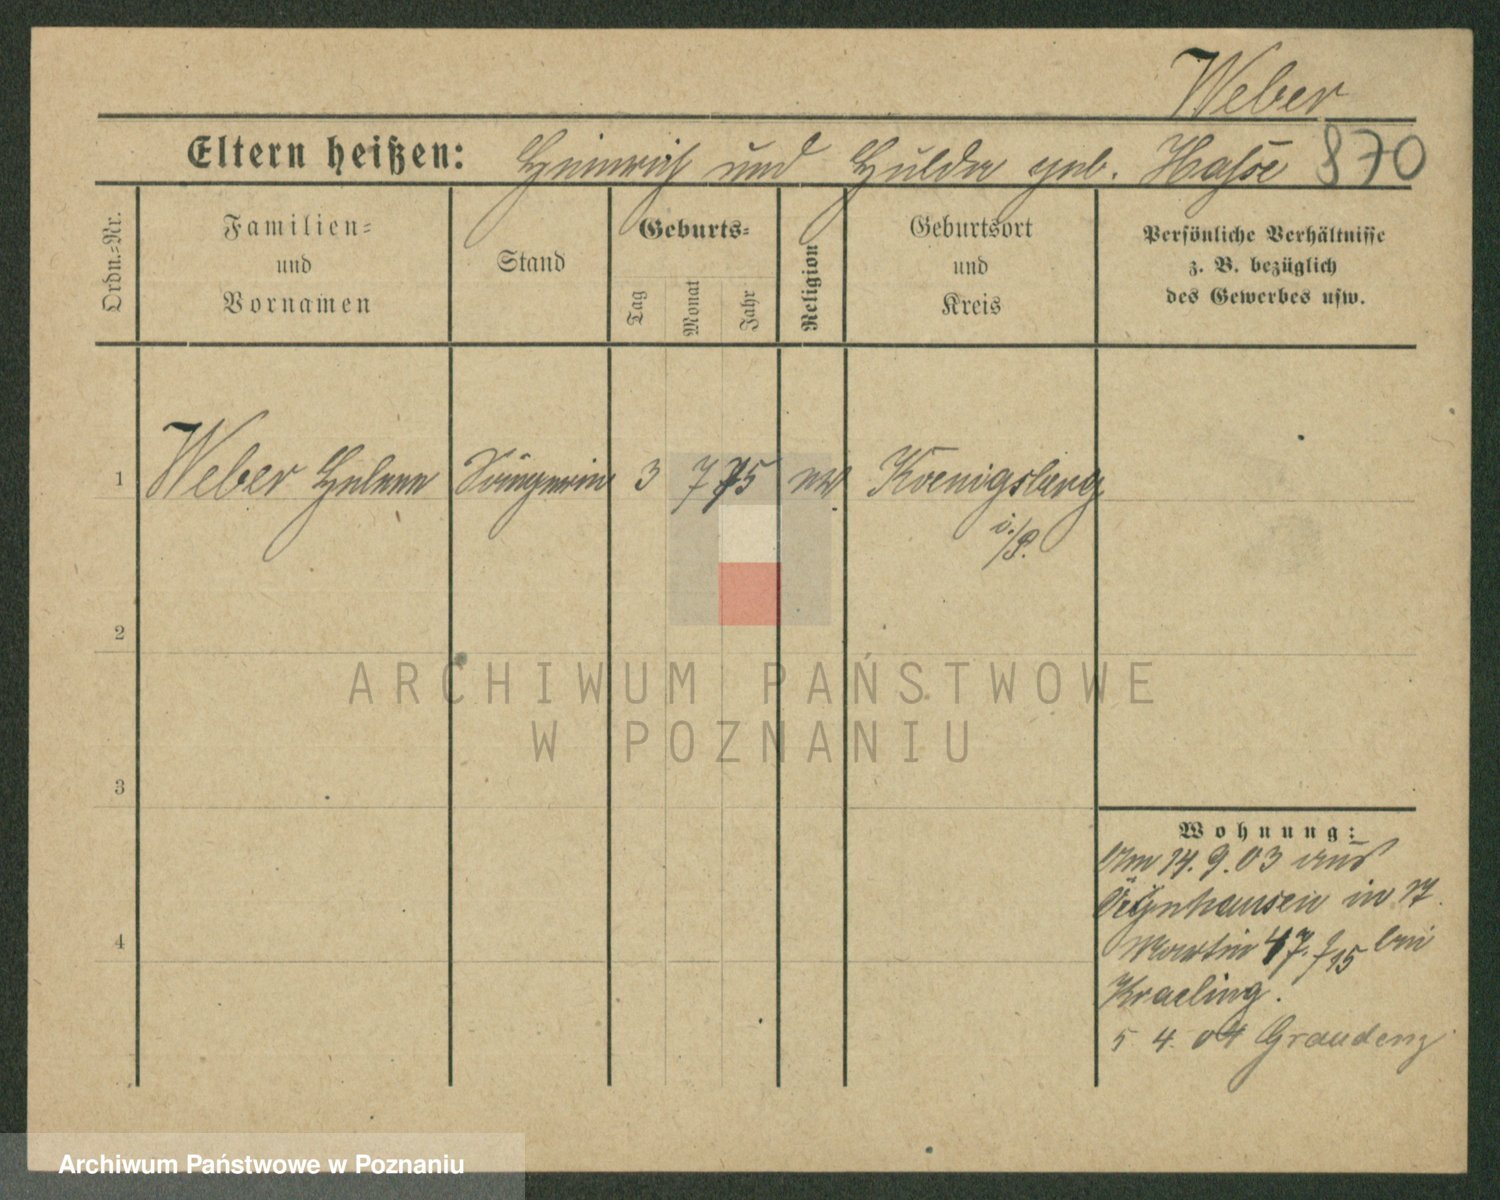 Weber
Eltern heißen: Heinrich und Hulda geb. Hasse 870
Ordn.-Nr.
Familien-
und
Vornamen
Stand
Geburts-
Tag
Monat
Jahr
Religion
Geburtsort
und
Kreis
Persönliche Verhältnisse
z. B. bezüglich
des Gewerbes usw.
1 Weber Helene Sängerin 3 7 75 ev Koenigsberg
i./P.
2
3
4
Wohnung:
Am 14. 9. 03 aus
Oeynhausen in St.
Martin 47. bei
Kraeling.
5 4. 04 Graudenz
ARCHIWUM PAŃSTWOWE
W POZNANIU
Archiwum Państwowe w Poznaniu